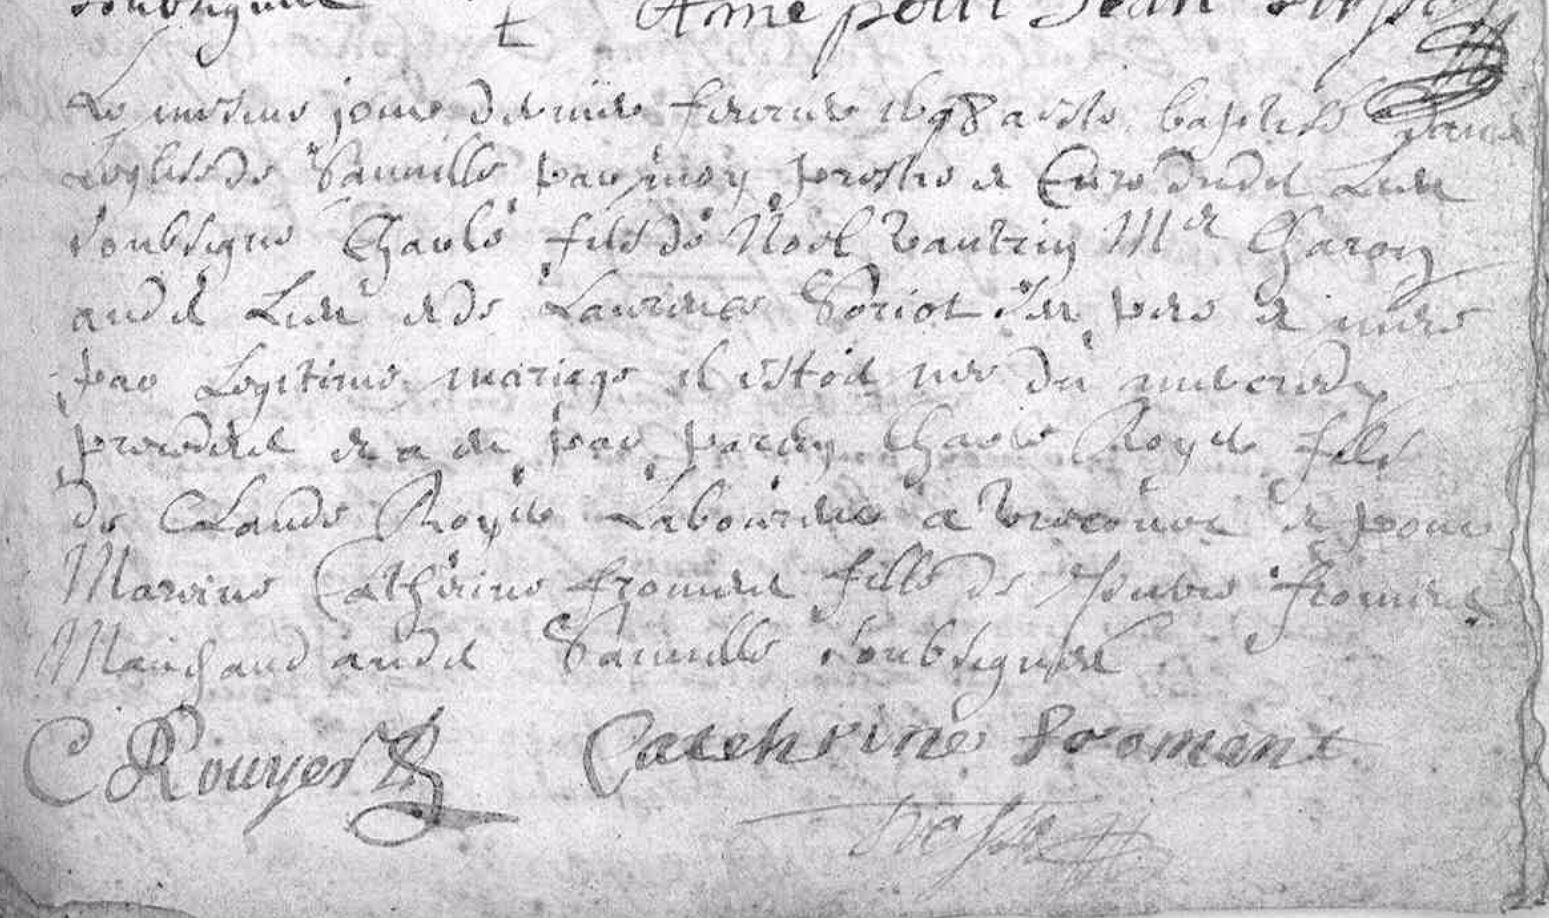 soubsignee
Anne pour Jean
Le mesme jour dernier febvrier 1698 a este baptisé dans
Leglise de Sauville par moy prestre et Curé dudit Lieu
soubsigné Charle fils de Noel Vautrin Mtr Charon
audit Lieu et de Laurence Soriot ses pere et mere
par Legitime mariage il estoit né du
precedent et a eu par parein Charle Royer fils
de Claude Royer Laboureur a et pour
Mareine Catherine froment fille de froment
Marchand audit Sauville soubsignez
C Rouyer Catehrine Froment